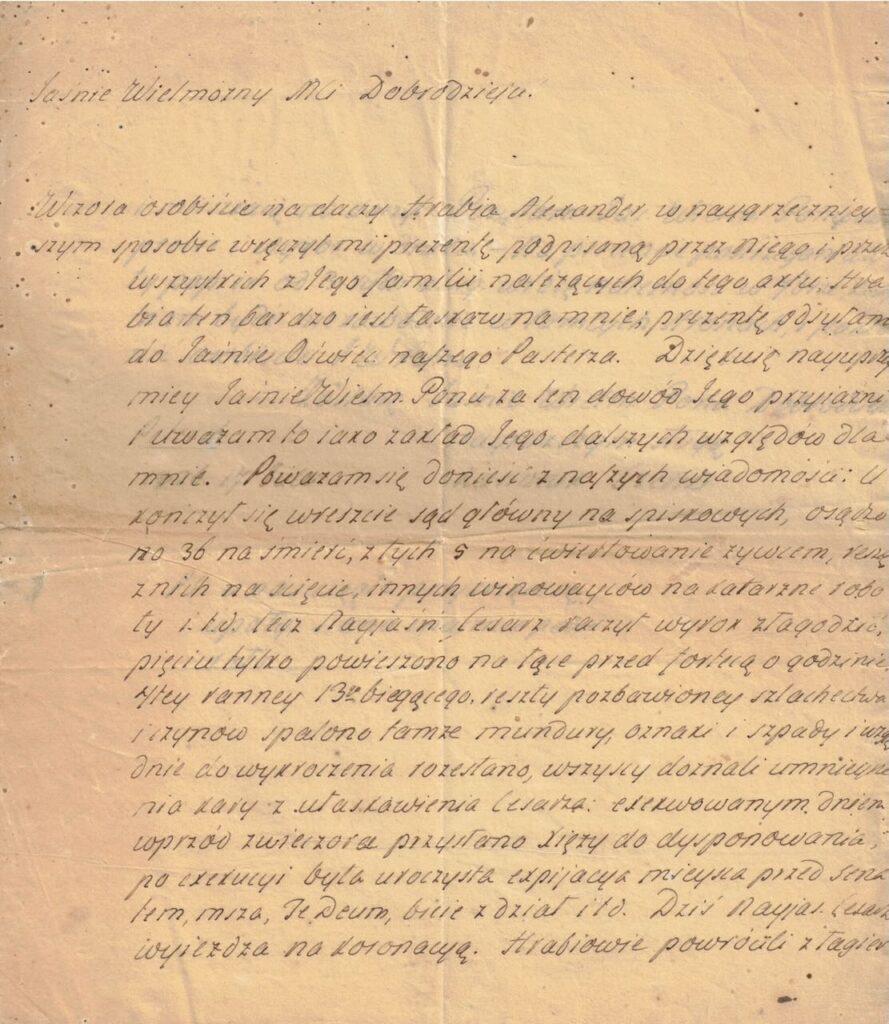 Jaśnie Wielmożny Mci Dobrodzieju.
Wczora osobiście na daczy Hrabia Alexander w naygrzeczniey
szym sposobie wręczył mi prezentę podpisaną przez Niego i przez
wszystkich z Jego familii należących do tego aktu. Hra
bia ten bardzo iest łaskaw na mnie; prezentę odsyłam
do Jaśnie Oświec. naszego Pasterza. Dziękuię nayuprzy
miey Jaśnie Wielm. Panu za ten dowód Jego przyiazni
i uważam to iako zakład Jego dalszych względów dla
mnie. Poważam się donieść z naszych wiadomości: U
kończył się wreszcie sąd główny na spiskowych, osądzo
no 36 na śmierć, z tych 5 na ćwiertowanie żywcem, resztę
z nich na ścięcie, innych winowayców na katarzne robo
ty i. t. d. lecz Nayjaśn. Cesarz raczył wyrok złagodzić,
pięciu tylko powieszono na łące przed fortecą o godzinie
4tey ranney 13 bieżącego, reszty pozbawioney szlachectwa
i czynów spalono tamże mundury, oznaki i szpady i wzglę
dnie do wykroczenia rozesłano, wszyscy doznali umnieysze
nia kary z ułaskawienia Cesarza: exekwowanym dniem
wprzód z wieczora przysłano Xięży do dysponowania,
po exekucyi była uroczysta expijacya mieysca przed Sena
tem, msza, Te Deum, bicie z dział i t d. Dziś Nayjaś. Cesarz
wyieżdza na koronacyą. Hrabiowie powrócili z łagier